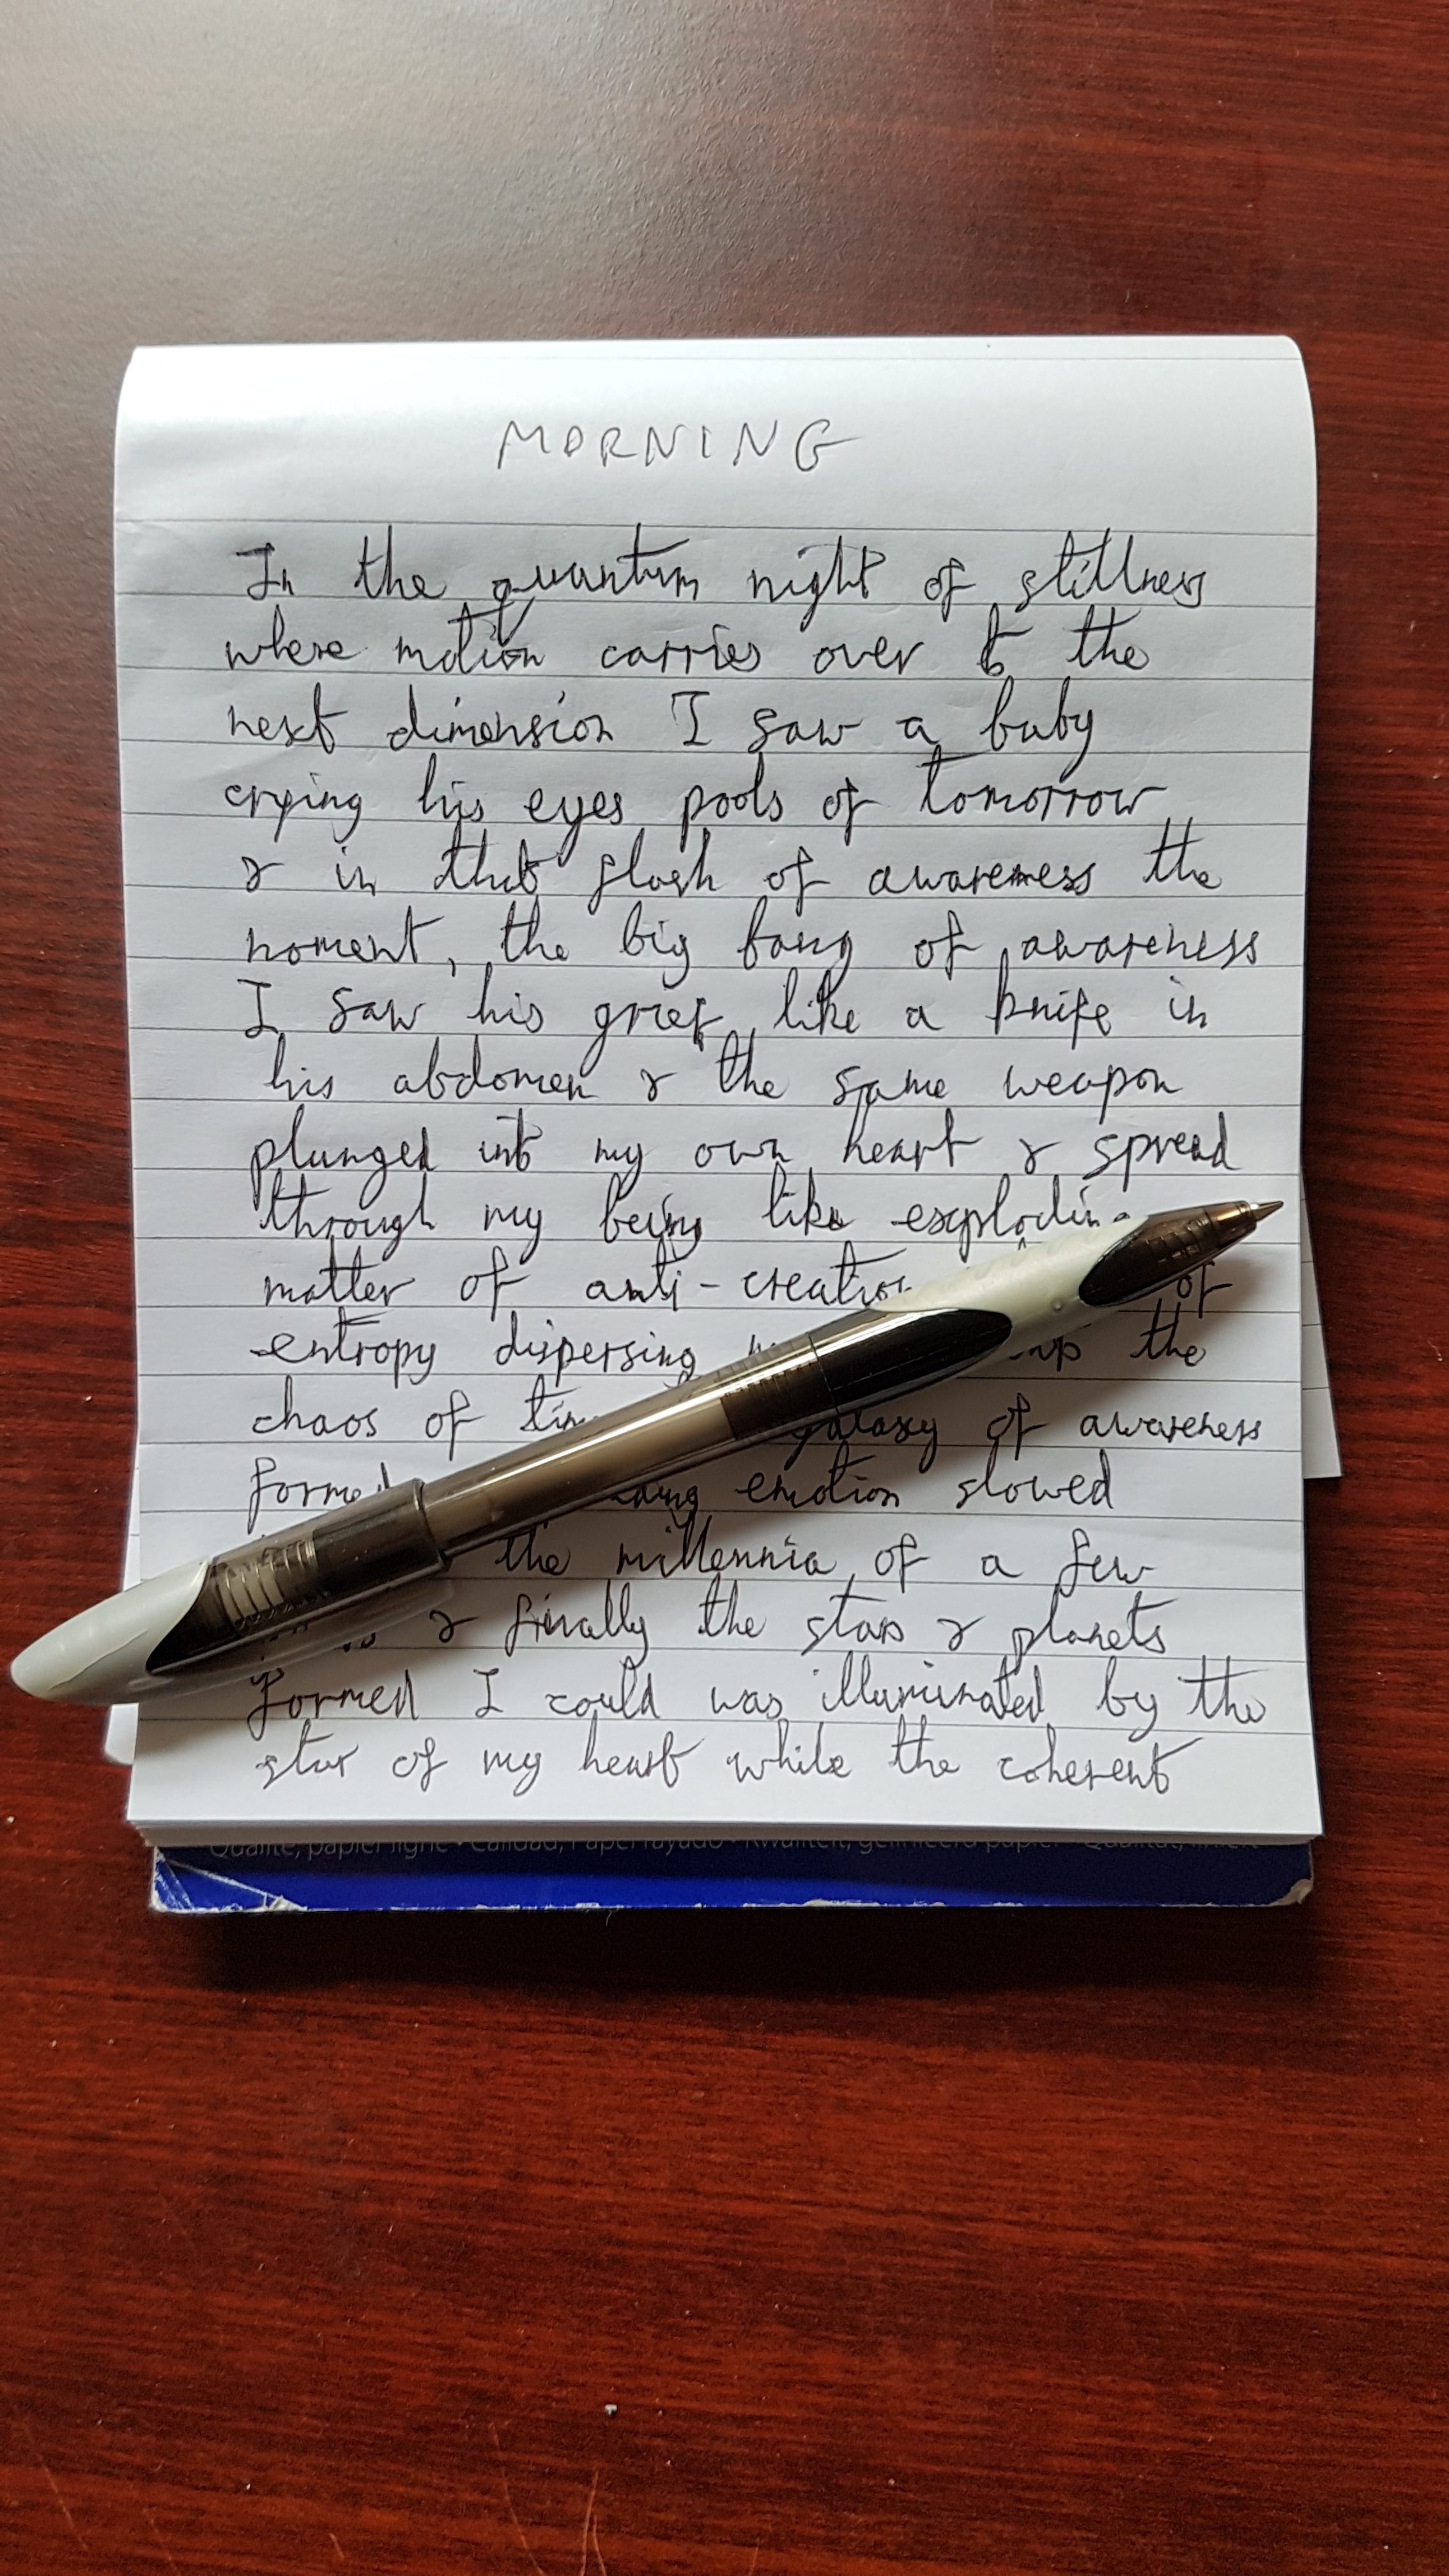 MORNING
In the quantum night of stillness
where motion carries over to the
next dimension I saw a baby
crying his eyes pools of tomorrow
& in that flash of awareness the
moment, the big bang of awareness
I saw his grief like a knife in
his abdomen & the same weapon
plunged into my own heart & spread
through my being like
matter of anti-creation of
entropy dispersing the
chaos of galaxy of awareness
emotion slowed
the millennia of a few
& finally the stars & planets
formed I could was illuminated by the
star of my heart while the coherent
Qualité, papier ligné • Calidad, Papel rayado • Kwaliteit, gelinieerd papier